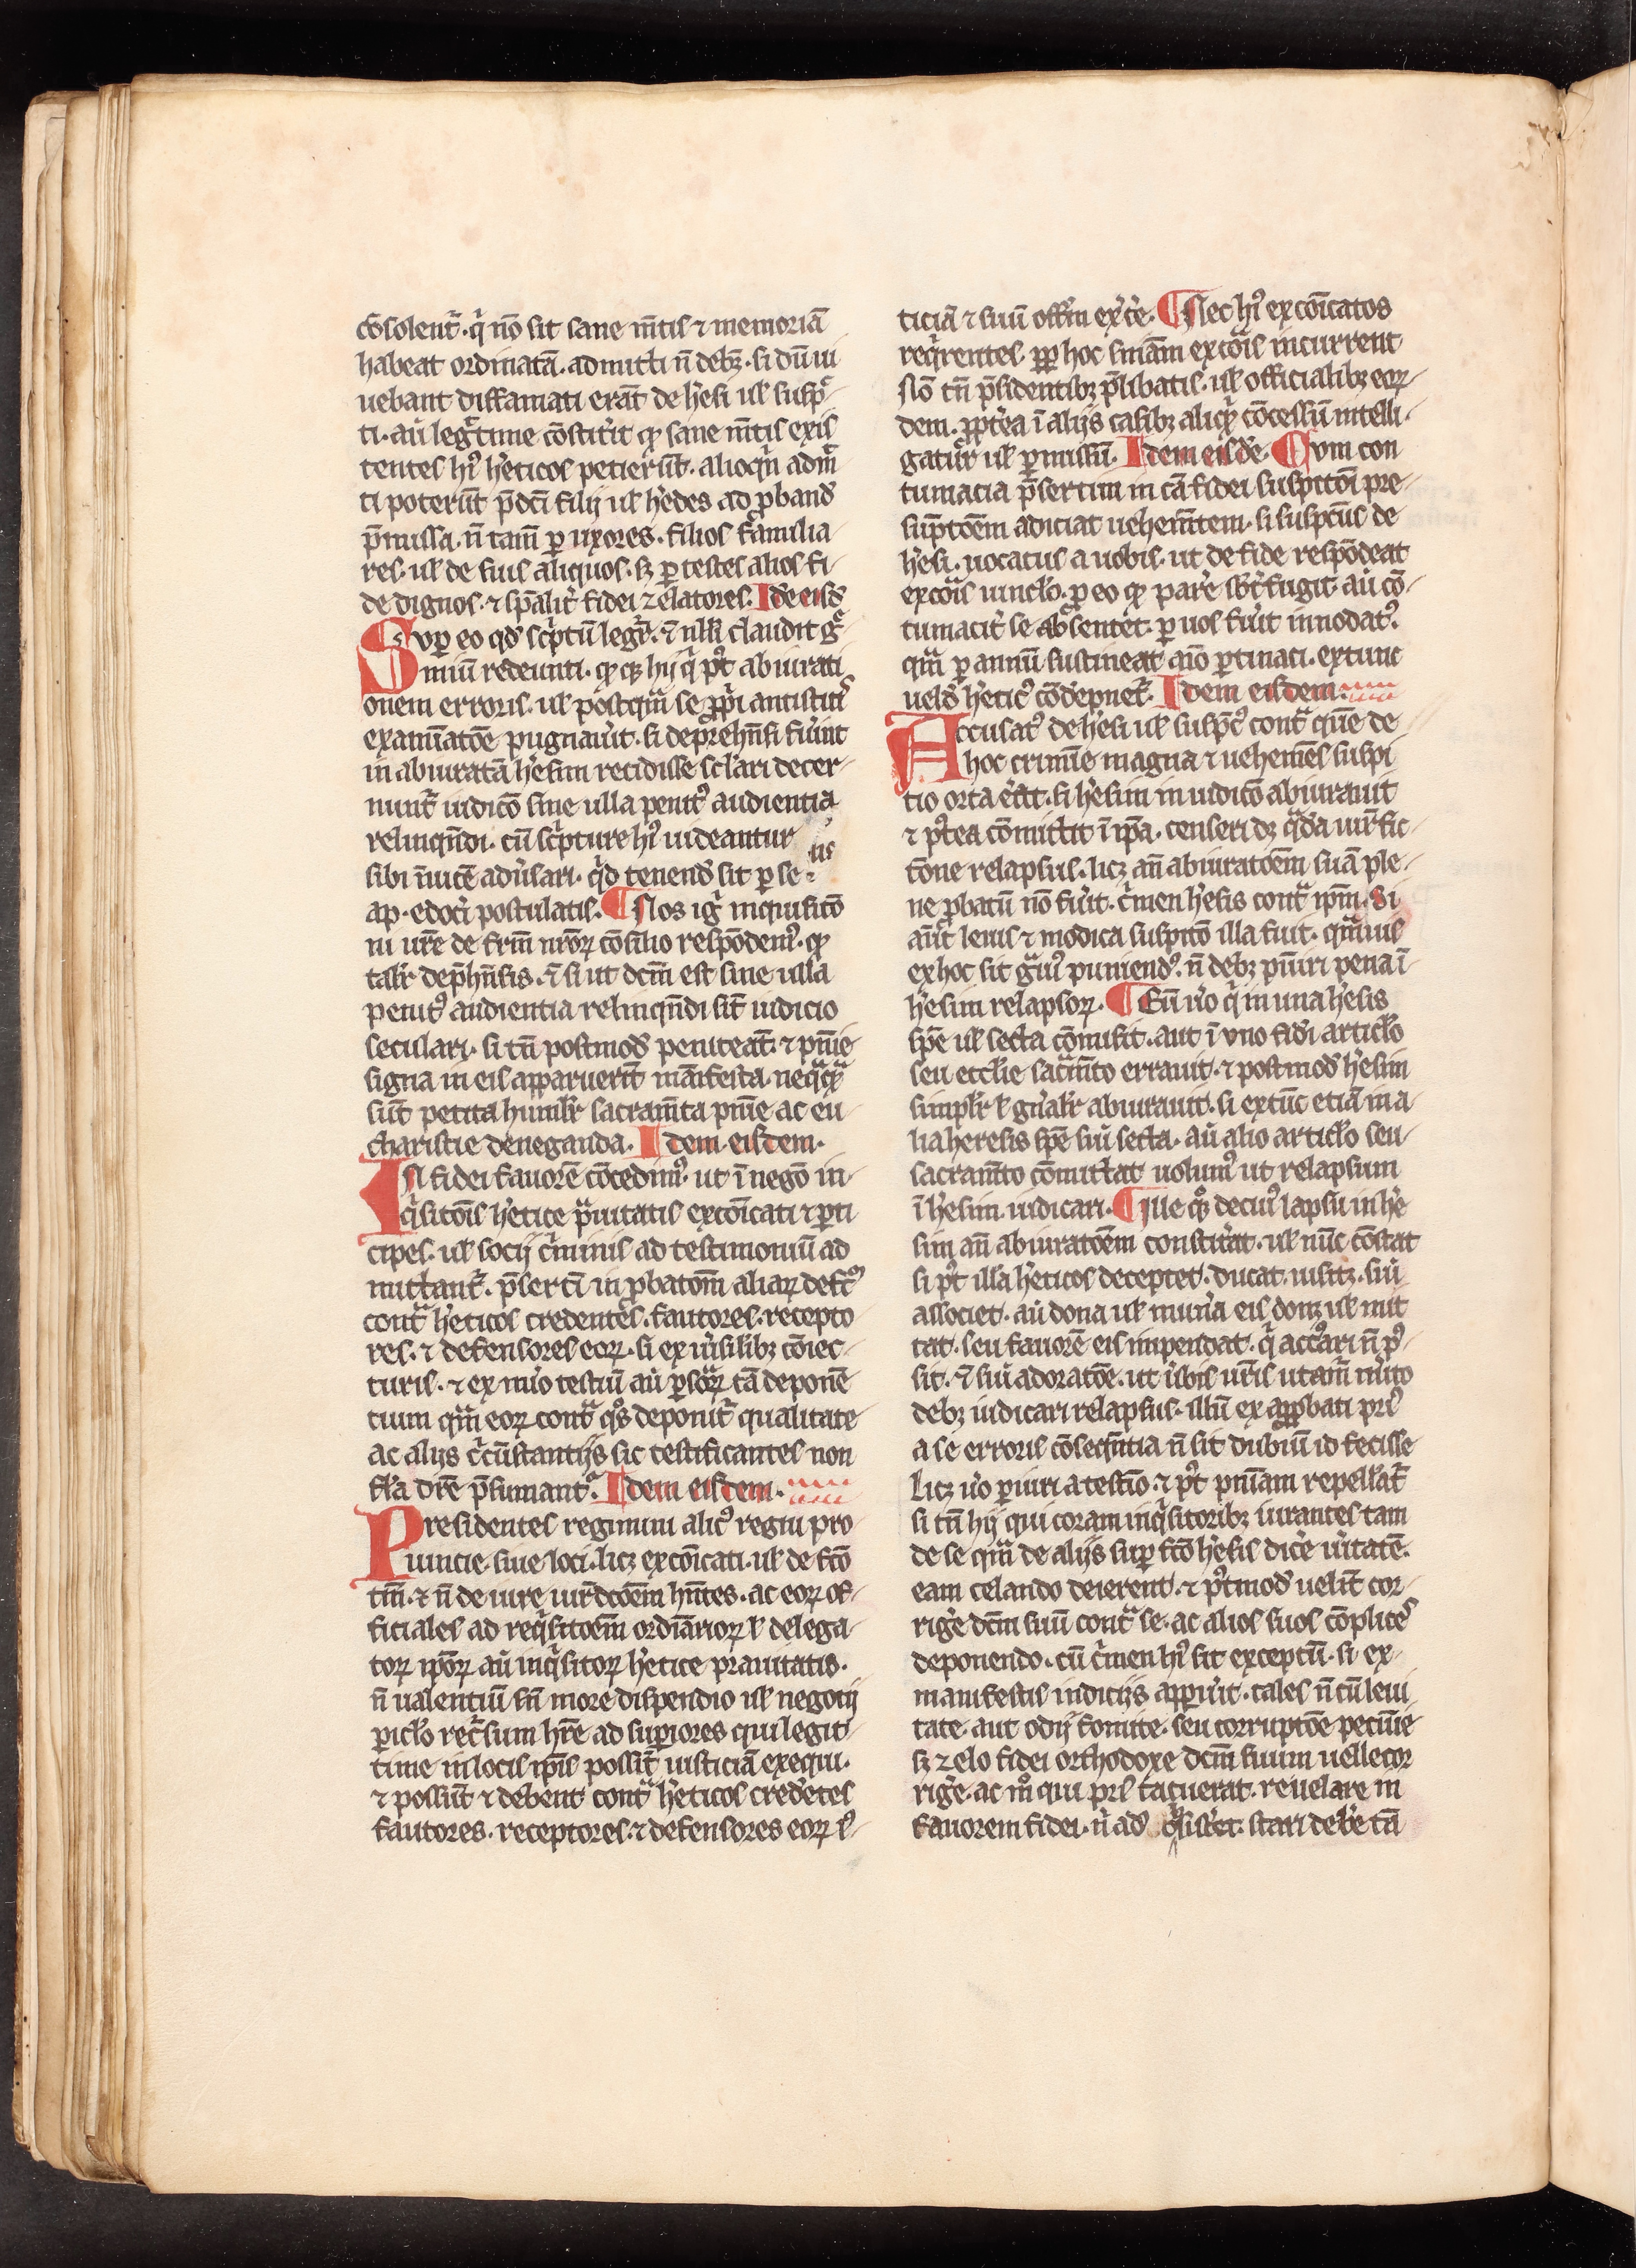 cōsolent᷑. q̇ nō sit sane mētis ⁊ memoriā
habeat ordinatā. admitti ñ debꝫ. si dū ui
uebant diffamati erāt de h̓esi ul̓ susp̄c
ti. aū legittime cōstiterit ꝙ sane mētis exis
tentes hꝰ h̓eticos petierūt. alioqn̄ admit
ti poterūt p̄dc̄i filij ul̓ h̓edes ad ꝓband̓
p̄missa. ñ tam̄ ꝑ uxores. filios familia
res. ul̓ de suis aliquos. sꝫ ꝑ testes alios fi-
de dignos. ⁊ sp̄alit᷑ fidei zelatores. Idē eisd̓
Suꝑ eo qd̓ sc̓ptū legit᷑. ⁊ nll̓i claudit g̓
miū redeunti. ꝙ ꝗ hij q̇ pꝰt abiurati
onem erroris. ul̓ postqm̄ se ꝓpi antistitis
examīatōe pugnau̓it. si deprehn̄si fu̓int
in abiuratā h̓esim recidisse sc̓lari decer-
nunt᷑ iudicō sine ulla penitꝰ audientia
relinqn̄di. cū sc̓pture hꝰ uideantur
sibi īuicē adu̓sari. q̓d tenend̓ sit ꝑ se-
ap. edoc̄i postulatis. ¶ Nos ig̓ inquisitō
ni ur̄e de frm̄ nr̄oꝝ cōsilio respōdemꝰ. ꝙ
talit᷑ dep̄hn̄sis. ⁊ si ut dcm̄ est sine ulla
penitꝰ audientia relinqn̄di sīt iudicio
seculari. si tn̄ postmod̓ peniteāt. ⁊ pn̄ie
signa in eis apparuerīt manifesta. neq̄q̄ꝫ
sūt petita humil̓r sacram̄ta pn̄ie ac eu
charistie deneganda. Idem eisdem.
IN fidei fauorē cōcedimꝰ. ut ī negō in-
q̓sitōis h̓etice p̓uitatis excōīcati ⁊ ꝑti
cipes. ul̓ socij c̓minis ad testimoniū ad
mittant᷑. p̄sertī in ꝓbatōm̄ aliaꝝ defc̄ū
cont̓ h̓eticos credentes. fautores. recepto
res. ⁊ defensores eoꝝ. si ex u̓isilibꝫ cōiec-
turis. ⁊ ex nu̓o testiū aū ꝑsonaꝝ tā deponē
tium qm̄ eoꝝ cont̓ q̊s deponit᷑ qualitate
ac alijs c̓cūstantijs sic testificantes non
fl̓a dice̓ p̄sumant᷑. Idem eisdem.
Presidentes regimini alicꝰ regni pro
uincie. siue loci. licꝫ excōīcati. ul̓ de fc̄o
tm̄. ⁊ ñ de iure iur̄dictōem hn̄tes. ac eoꝝ of-
ficiales ad req̓sitōem ordīarioꝝ l̓ delega-
toꝝ ip̄oꝝ aū inq̓sitoꝝ h̓etice prauitatis.
ñ ualentiū sn̄ more dispendio ul̓ negotij
ꝑicl̓o rec̓sum hr̄e ad suꝑiores qui legit-
time in locis ip̄is possīt iusticiā exequi.
⁊ possūt ⁊ debent cont̓ h̓eticos crede̓tes
fautores. receptores. ⁊ defensores eoꝝ iꝰ-
ticiā ⁊ suū offm̄ exe̓ce̓. ¶ Nec hi excōīcatos
req̓rentes. ꝓp hoc sn̄iam excōīs incurrent
Nō tn̄ p̄sidentibꝫ p̄libatis. ul̓ officialibꝫ eoꝝ-
dem. ꝓpt̓ea ī alijs casibꝫ aliq̄ꝫ cōcessū intelli-
gatur ul̓ ꝑmissū. Idem eisdē. Cum con
tumacia p̄sertim in cā fidei suspitōi pre-
suptōem adiciat uehemētem. si suspectus de
h̓esi. uocatus a uobis. ut de fide respōdeat
excōīs uincl̓o. ꝑ eo ꝙ pare̓ sbt̓fugit. aū cō-
tumacit᷑ se absentet. ꝑ uos fu̓it innodatꝰ.
qm̄ ꝑ annū sustineat aīo ꝑtinaci. extunc
uelud̓ h̓eticꝰ cōdēpnet᷑. Idem eisdem.
Accusatꝰ de h̓esi ul̓ suspc̄ꝰ cont̓ quē de
hoc crimīe magna ⁊ uehemēs suspi
tio orta e̓at. si h̓esim in iudicō abiurauit
⁊ pꝰtea cōmittit ī ip̄a. censeri dꝫ q̓dā iur̄ fic-
tōne relapsus. licꝫ an̄ abiuratōem suā ple-
ne ꝓbatū nō fu̓it. c̓men h̓esis cont̓ ip̄m. Si
aūt leuis ⁊ modica suspitō illa fuit. qm̄uis
ex hoc sit g̓uiꝰ puniendꝰ. ñ debꝫ pūiri pena ī
h̓esim relapsoꝝ. ¶ Eū u̓o q̇ in una h̓esis
spē ul̓ secta cōmisit. aut ī uno fidei articl̓o
seu eccl̓ie sacm̄to errauit. ⁊ postmod̓ h̓esim
simpl̓r l̓ gn̓alr abiurauit. si extūc etiā in a
lia heresis spē siū secta. aū alio articl̓o seu
sacram̄to cōmittat uolumꝰ ut relapsum
ī h̓esim iudicari. ¶ Ille q̊ꝫ de cuiꝰ lapsu in h̓e
sim an̄ abiuratōem constit̓at. ul̓ nūc cōstat
si pꝰt illā h̓eticos deceptet. ducat. uisitꝫ. siū
associet. aū dona ul̓ mun̓a eis donꝫ ul̓ mit
tat. seu fauorē eis impendat. q̇ acc̓sari ñ pꝰ
sit. ⁊ siū adoratōe. ut u̓bis ur̄is utam̄ m̓ito
debꝫ iudicari relapsus. illū ex appꝛobati prꝰ
a se erroris cōseqn̄tia ñ sit dubiū id fecisse
Licꝫ u̓o ꝑiuri a testio. ⁊ pꝰt pn̄iam repellāt᷑
si tn̄ hij qui coram inq̓sitoribꝫ iurantes tam
de se qm̄ de alijs suꝑ fc̄o h̓esis dice̓ u̓itatē.
eam celando deierent. ⁊ pꝰtmod̓ uelīt cor-
rige̓ dcm̄ suū cont̓ se. ac alios suos cōplices
deponendo. cū c̓men hꝰ sit exceptū. si ex-
manifestis indicijs apparu̓it. tales ñ cū leui
tate. aut odij fomite. seu corruptōe pecūie
sꝫ zelo fidei orthodoxe dcm̄ suum uelle cor
rige̓. ac m̊ qui prꝰ tacuerat. reuelare in
fauorem fidei. n̓ ad q̓ sistet. stari debe̓ tā